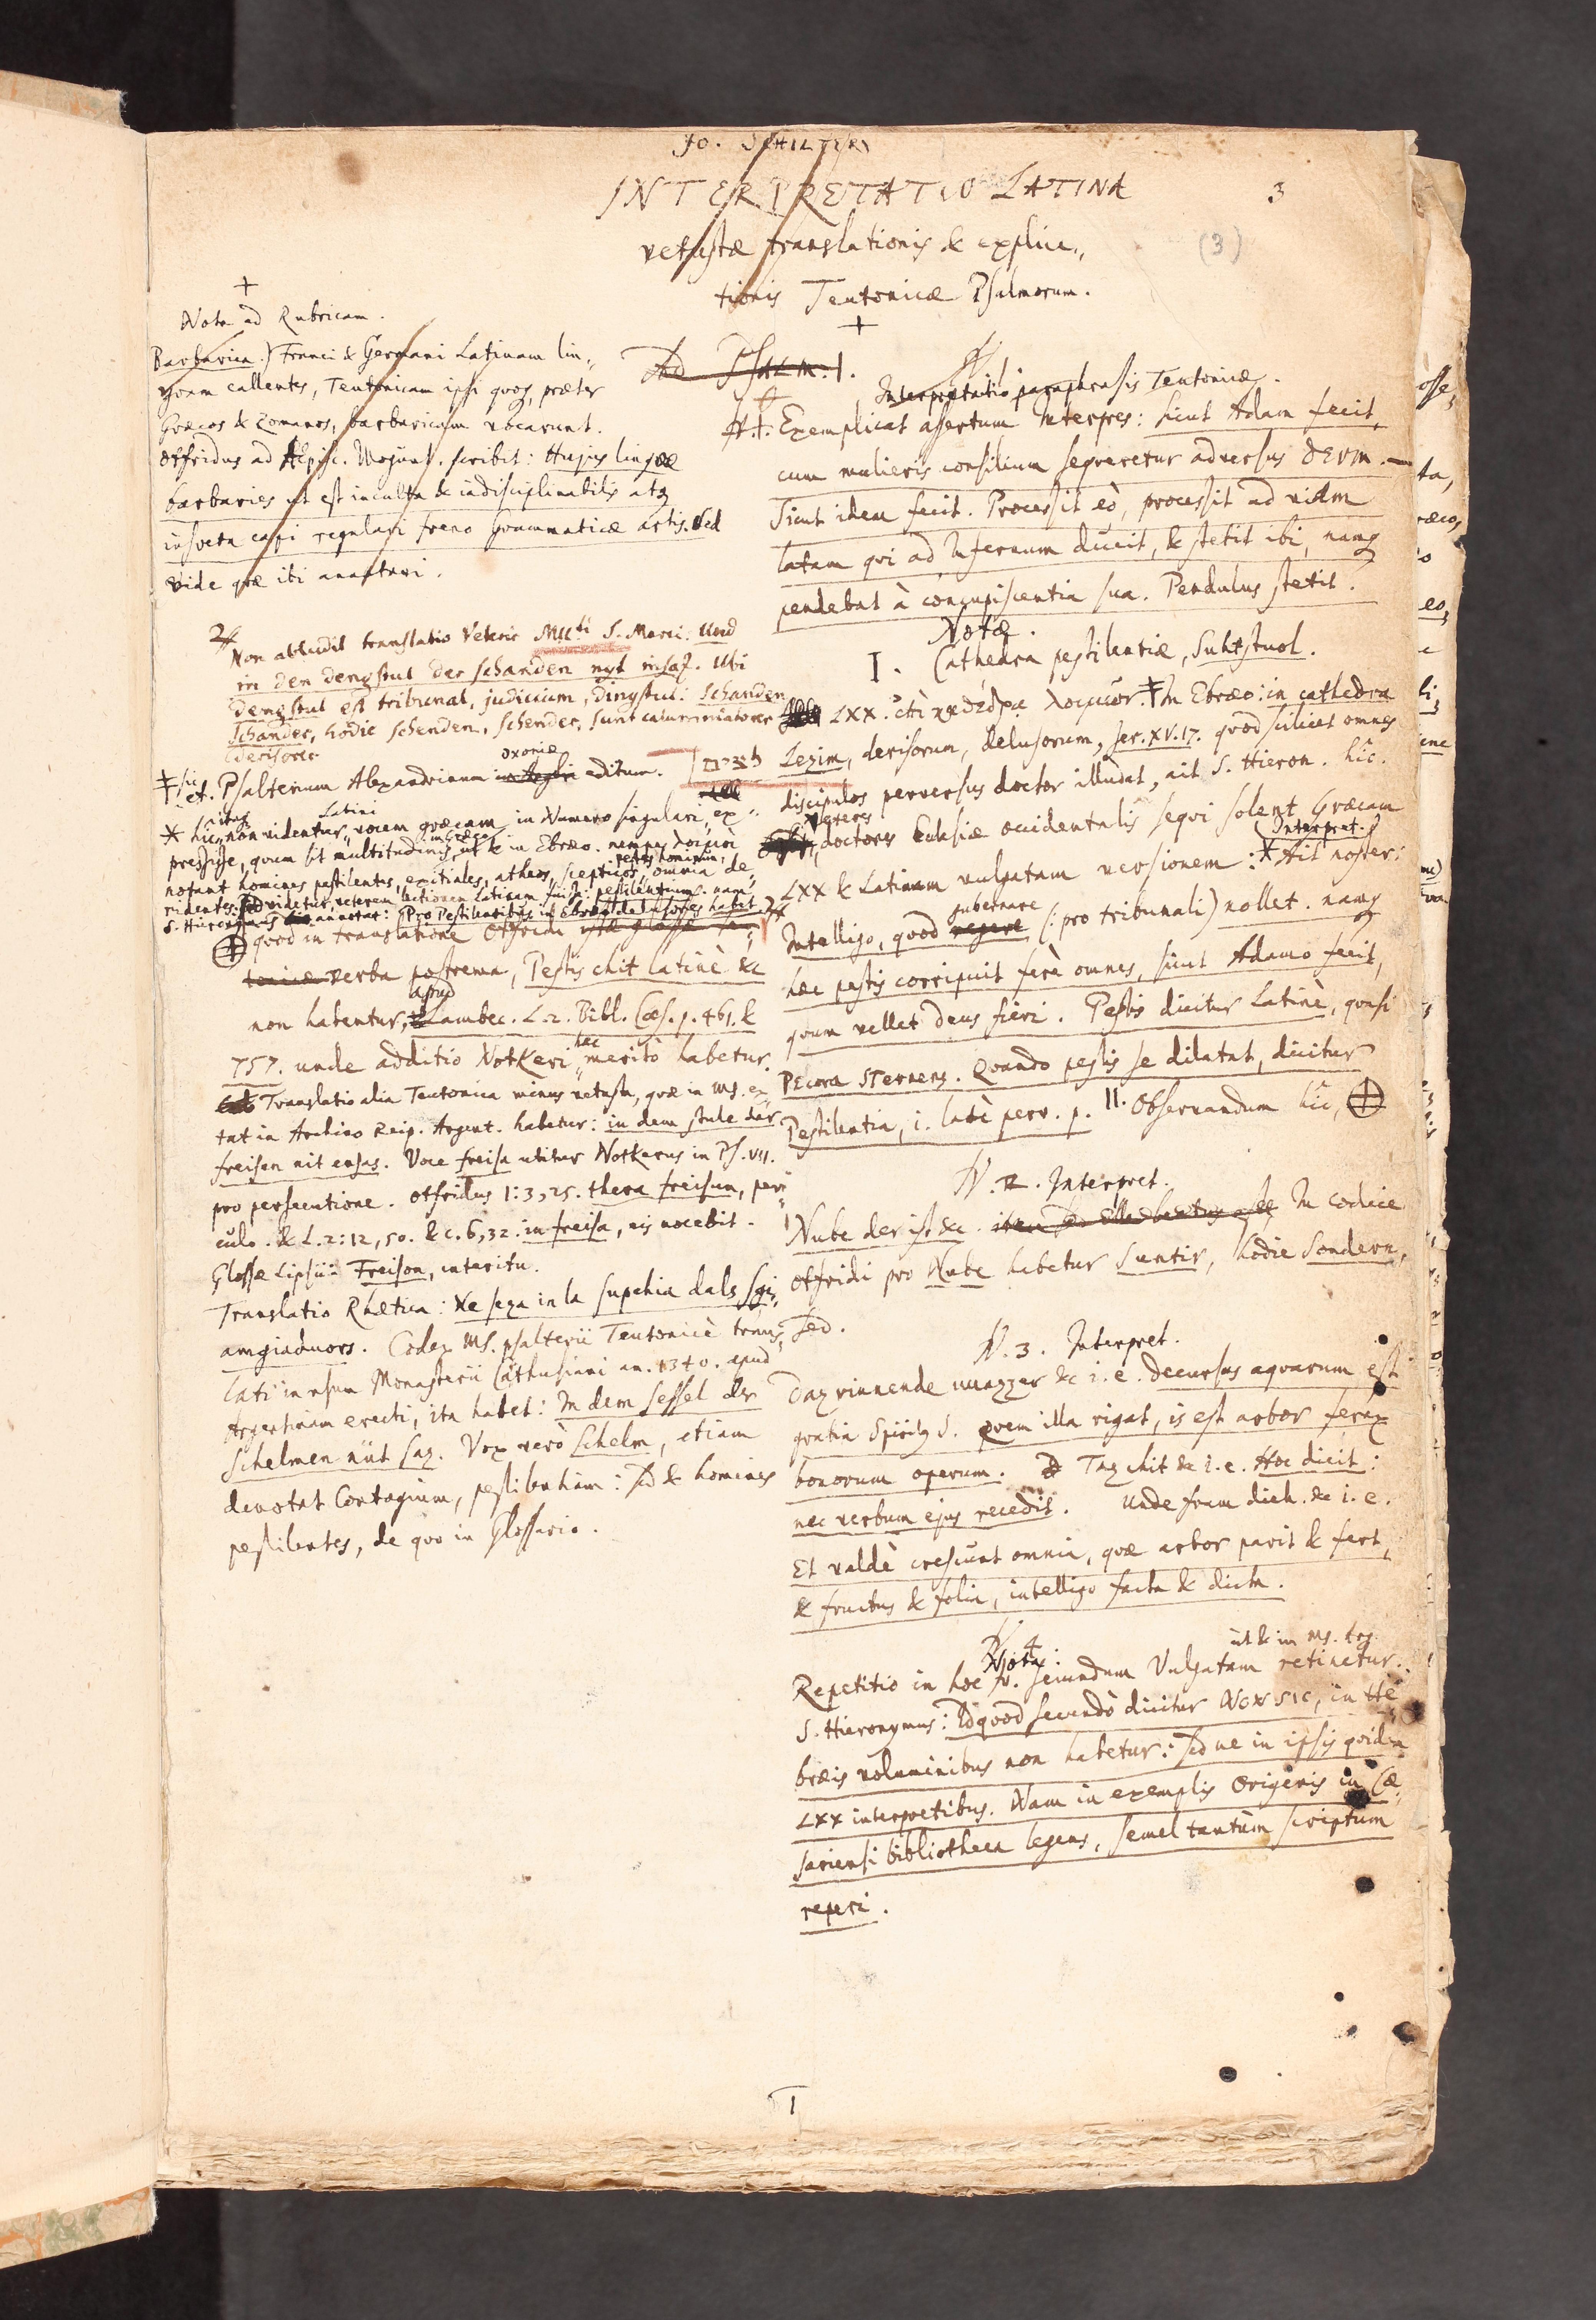 Jo. SCHILTERI
INTERPRETATIO LATINA
3
vetustæ translationis & explica„
(3)
tionis Teutonicæ Psalmorum.
+
Nota ad Rubricam.
Barbarica.) Franci & Germani Latinam lin„
guam callentes, Teutonicam ipsi quoq, præter
Græcos & Romanos, barbaricam vocarunt.
Otfridus ad Archiepisc. Mogunt. scribit: Hujus linguæ
barbaries ut est inculta & indisciplinabilis atq
insveta capi regulari freno Grammaticæ artis. Sed
vide quæ ibi annotavi.
24
Non abludit translatio Veteris MSti S. Mariæ: Und
in den dengstul der schanden nyt insaz. Ubi
dengstul est tribunal, judicium, dingstul: Schanden
Schander, hodie schenden, schender, sunt calumniatores
derisores
‡ sic et Psalterium Alexandrinum Oxoniæ editum.
* hic itaq non videntur Latini vocem græcam in Numero singulari, ex„
pressisse, quum sit multitudinis in Græco, ut & in Ebræo. nempe λοιμοὶ
notant homines pestilentes, exitiales, atheos, scepticos, pestes hominum, omnia de„
ridentes. Sed videtur veterem lectionem Latinam fuisse pestilentium. nam
S. Hieronymus annotat: Pro Pestilentibus in Ebræo delusores habet.
⊕ quod in translatione Otfridi
verba postrema, Pestis chit latinè &c
non habentur, apud Lambec. L.2. Bibl. Cæs. p. 461. &
757. unde additio Notkeri hæc meritò habetur.
Translatio alia Teutonica minus vetusta, quæ in MS. ex„
tat in Archivo Reip. Argent. habetur: in dem stule der
freisen nit ensas. Voce freisa utitur Notkerus in Ps. VII.
pro persecutione. Otfridus 1:3,25. thera freisun, peri„
culo. & L.2:12,50. & c.6,32. in freisa, eis nocebit.
Glossæ Lipsii: Freison, interitu.
Translatio Rhætica: Ne seza in la supchia dals sgi„
amgiaduors. Codex MS. psalterii Teutonicè trans„
lati in usum Monasterii Cathusiani an. 1340. apud
Argentinam erecti, ita habet: In dem sessel der
Schelmen nüt saz. Vox verò schelm, etiam
denotat Contagium, pestilentiam: sed & homines
pestilentes, de quo in Glossario.
Ad PSALM. I.
V. 1.
Interpretatio paraphrasis Teutonicæ.
V. 1. Exemplicat assertum Interpres: Sicut Adam fecit,
cum mulieris consilium sequeretur adversus DEUM.
Sicut idem fecit. Processit eò, processit ad viam
latam qvi ad Infernum ducit, & stetit ibi, namq
pendebat à concupiscentia sua. Pendulus stetit.
Notæ.
I. Cathedra pestilentiæ, Suhtstuol.
LXX. ἐπὶ καθέδρᾳ λοιμῶν. ‡ In Ebræo: in cathedra
לצים Lezim, derisorum, delusorum, Jer. XV.17. quòd scilicet omnes
discipulos perversus doctor illudat, ait S. Hieron. hîc.
Veteres doctores Eclesiæ occidentalis sequi solent Græcam
LXX & Latinam vulgatam versionem: * Ait noster Interpret.:
Intelligo, quod gubernare (: pro tribunali) nollet. namq
hæc pestis corripuit ferè omnes, sicut Adamo fecit,
quum vellet Deus fieri. Pestis dicitur Latinè, quasi
PEcora STernens. Quando pestis se dilatat, dicitur
Pestilentia, i. latè perv. p. II. Observandum hîc, ⊕
V. 2. Interpret.
Nube der ist &c. In codice
Otfridi pro Nube habetur Suntir, hodie Sondern,
Sed.
V. 3. Interpret.
Daz rinnende uuazzer &c i.e. Decursus aquarum est
gratia Spiritq S. Quem illa rigat, is est arbor ferax
bonorum operum. Taz chit &c i.e. Hoc dicit:
nec verbum ejus recedit. Unde fram dieh. &c i.e.
Et valdè crescunt omnia, quæ arbor parit & fert,
& fructus & folia, intelligo facta & dicta.
V. 4
Notæ:
Repetitio in hoc v. secundum Vulgatam retinetur. ut & in MS. Arg.
S. Hieronymus: Id quod secundò dicitur NON SIC, in He„
bræis voluminibus non habetur: sed ne in ipsis quidem
LXX interpretibus. Nam in exemplis Origenis in Cæ„
sariensi bibliotheca legens, semel tantùm scriptum
reperi.
I